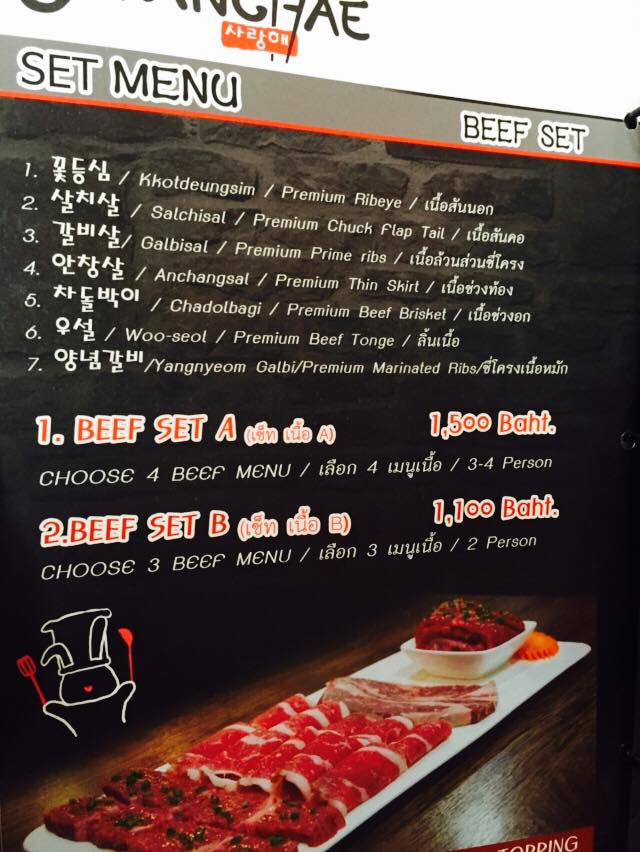 사랑해
SET MENU
BEEF SET
1. 꽃등심 / Kkotdeungsim / Premium Ribeye / เนื้อสันนอก
2. 살치살 / Salchisal / Premium Chuck Flap Tail / เนื้อสันคอ
3. 갈비살/ Galbisal / Premium Prime ribs / เนื้อล้วนส่วนซี่โครง
4. 안창살 / Anchangsal / Premium Thin Skirt / เนื้อช่วงท้อง
5. 차돌박이 / Chadolbagi / Premium Beef Brisket / เนื้อช่วงอก
6. 우설 / Woo-seol / Premium Beef Tonge / ลิ้นเนื้อ
7. 양념갈비/Yangnyeom Galbi/Premium Marinated Ribs/ซี่โครงเนื้อหมัก
1. BEEF SET A (เซ็ท เนื้อ A) 1,500 Baht.
CHOOSE 4 BEEF MENU / เลือก 4 เมนูเนื้อ / 3-4 Person
2.BEEF SET B (เซ็ท เนื้อ B) 1,100 Baht.
CHOOSE 3 BEEF MENU / เลือก 3 เมนูเนื้อ / 2 Person